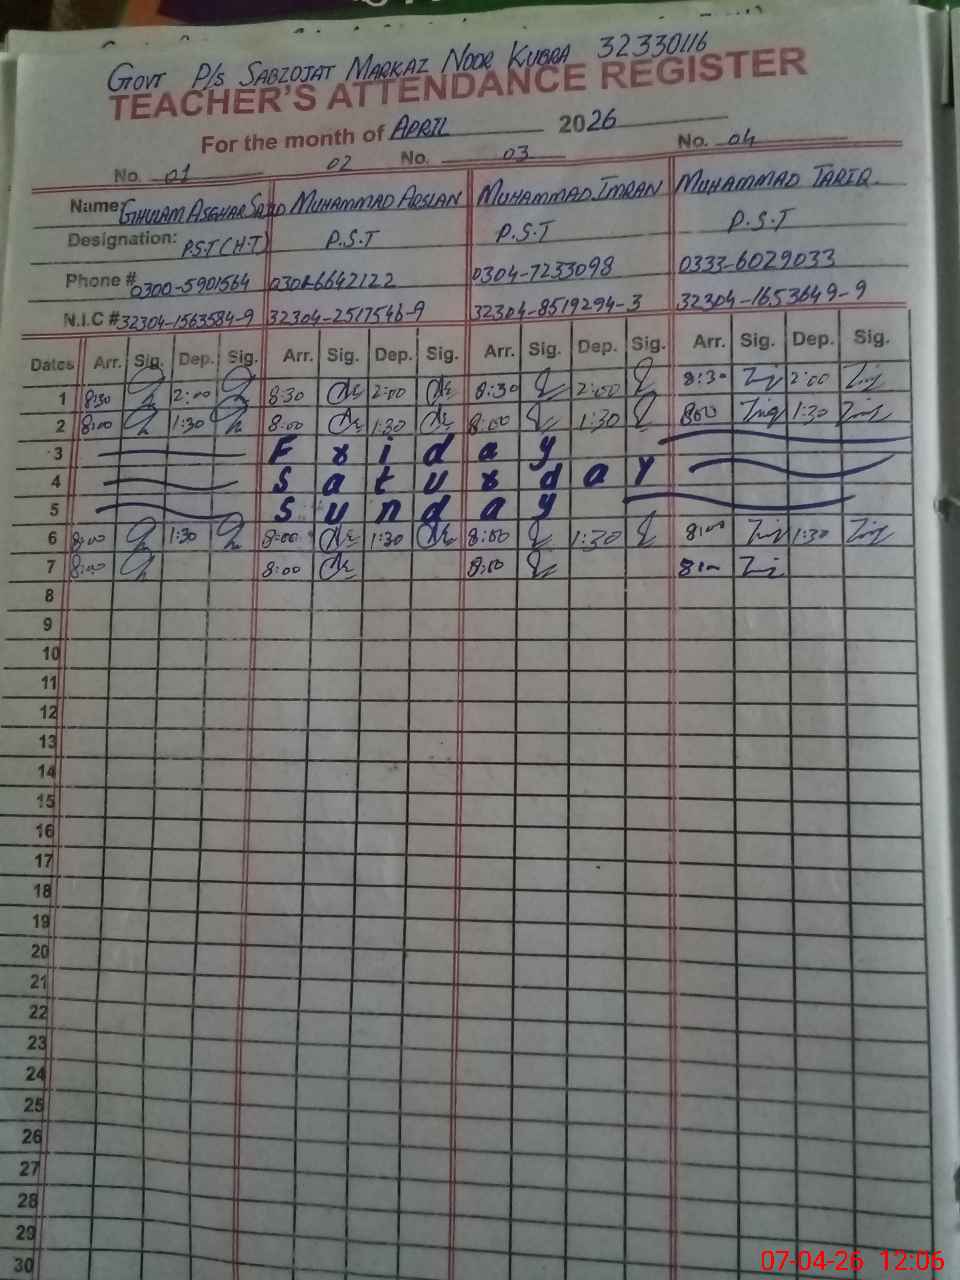 Govt P/s Sabzojat Markaz Noor Kubra 32330116
TEACHER'S ATTENDANCE REGISTER
For the month of APRIL 2026
No. 01 02 No. 03 No. 04
Name: Ghulam Asghar Sajid Muhammad Arslan Muhammad Imran Muhammad Tariq
Designation: P.S.T (H.T) P.S.T P.S.T P.S.T
Phone # 0300-5901564 0301-6642122 0304-7233098 0333-6029033
N.I.C # 32304-1563584-9 32304-2517546-9 32304-8519294-3 32304-1653649-9
Dates Arr. Sig. Dep. Sig. Arr. Sig. Dep. Sig. Arr. Sig. Dep. Sig. Arr. Sig. Dep. Sig.
1 8:30 2:00 8:30 2:00 8:30 2:00 8:30 2:00
2 8:00 1:30 8:00 1:30 8:00 1:30 8:00 1:30
3 Friday
4 Saturday
5 Sunday
6 8:00 1:30 8:00 1:30 8:00 1:30 8:00 1:30
7 8:00 8:00 8:00 8:00
8
9
10
11
12
13
14
15
16
17
18
19
20
21
22
23
24
25
26
27
28
29
30
07-04-26 12:06